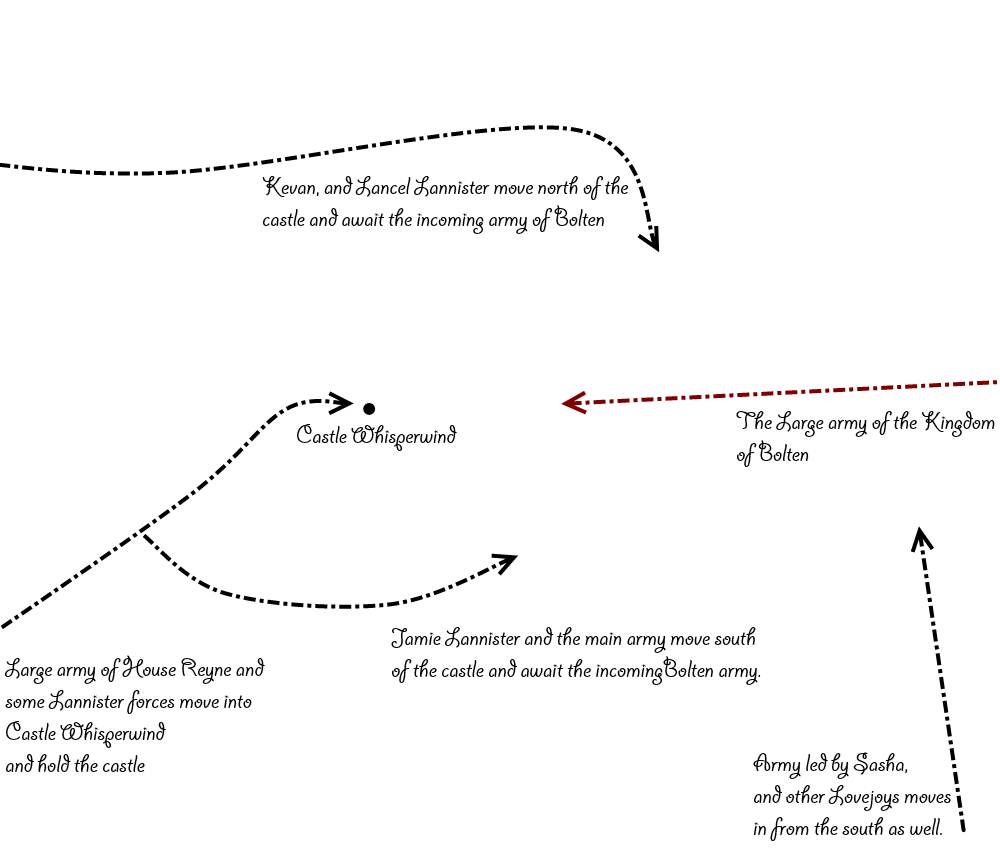 Kevan, and Lancel Lannister move north of the
castle and await the incoming army of Bolten
Castle Whisperwind
The Large army of the Kingdom
of Bolten
Jamie Lannister and the main army move south
of the castle and await the incoming Bolten army.
Large army of House Reyne and
some Lannister forces move into
Castle Whisperwind
and hold the castle
Army led by Sasha,
and other Lovejoys moves
in from the south as well.